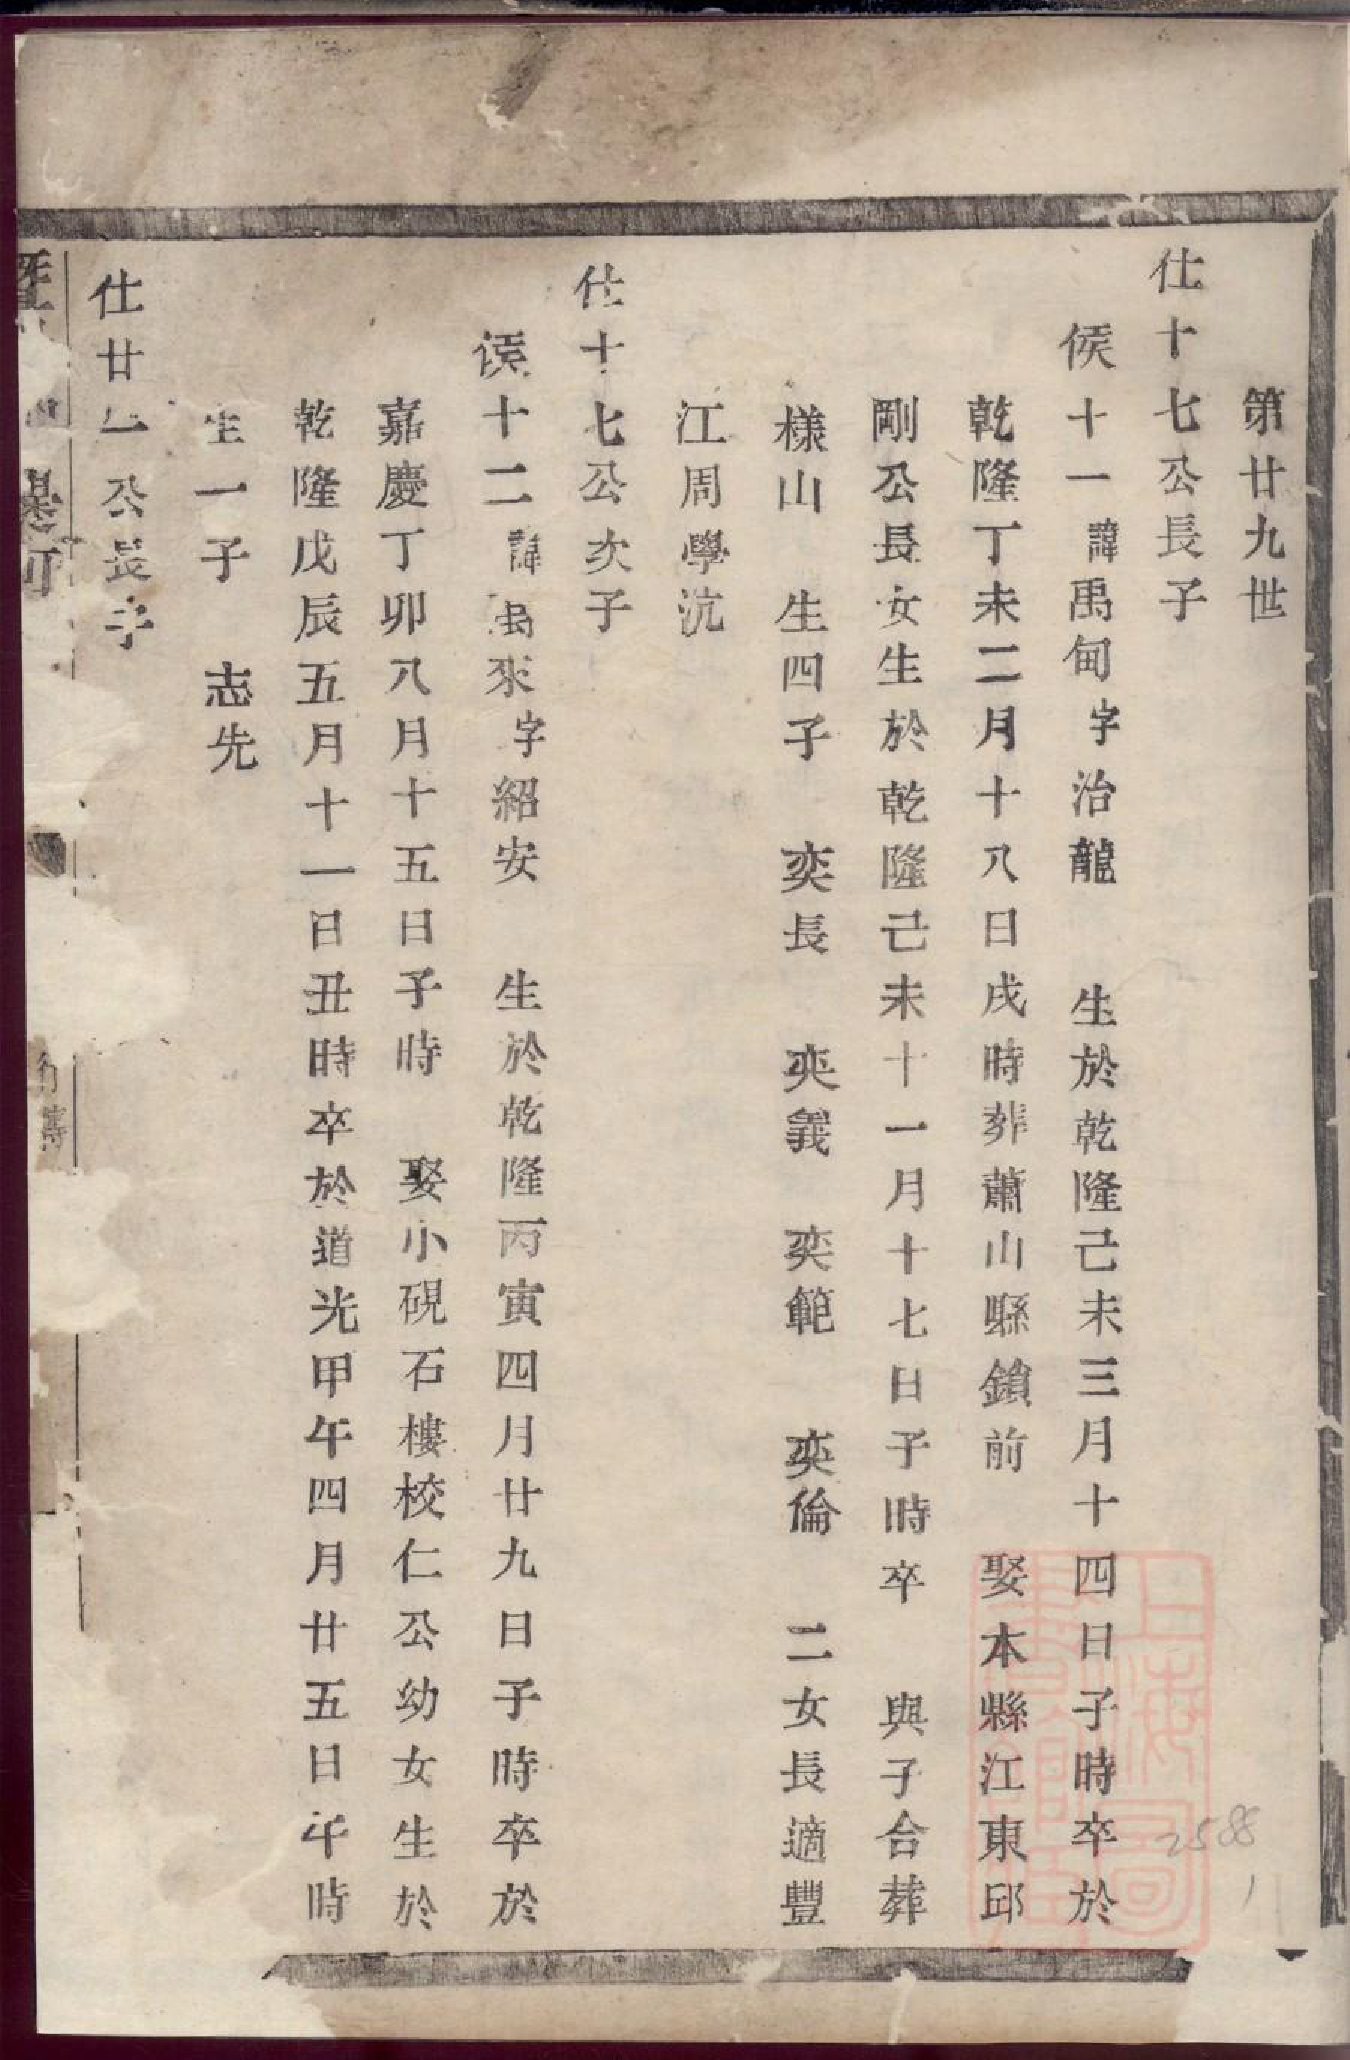 第廿九世
仕十七公長子
侯十一諱禹甸字治龍 生於乾隆己未三月十四日子時卒於
乾隆丁未二月十八日戌時葬蕭山縣鎖前 娶本縣江東邱
剛公長女生於乾隆己未十一月十七日子時卒 與子合葬
樣山 生四子 奕長 奕義 奕範 奕倫 二女長適豐
江周學沆
仕十七公次子
侯十二諱禹來字紹安 生於乾隆丙寅四月廿九日子時卒於
嘉慶丁卯八月十五日子時 娶小硯石樓校仁公幼女生於
乾隆戊辰五月十一日丑時卒於道光甲午四月廿五日午時
生一子 志先
仕廿一公長子
暨
上海圖書館藏
2588